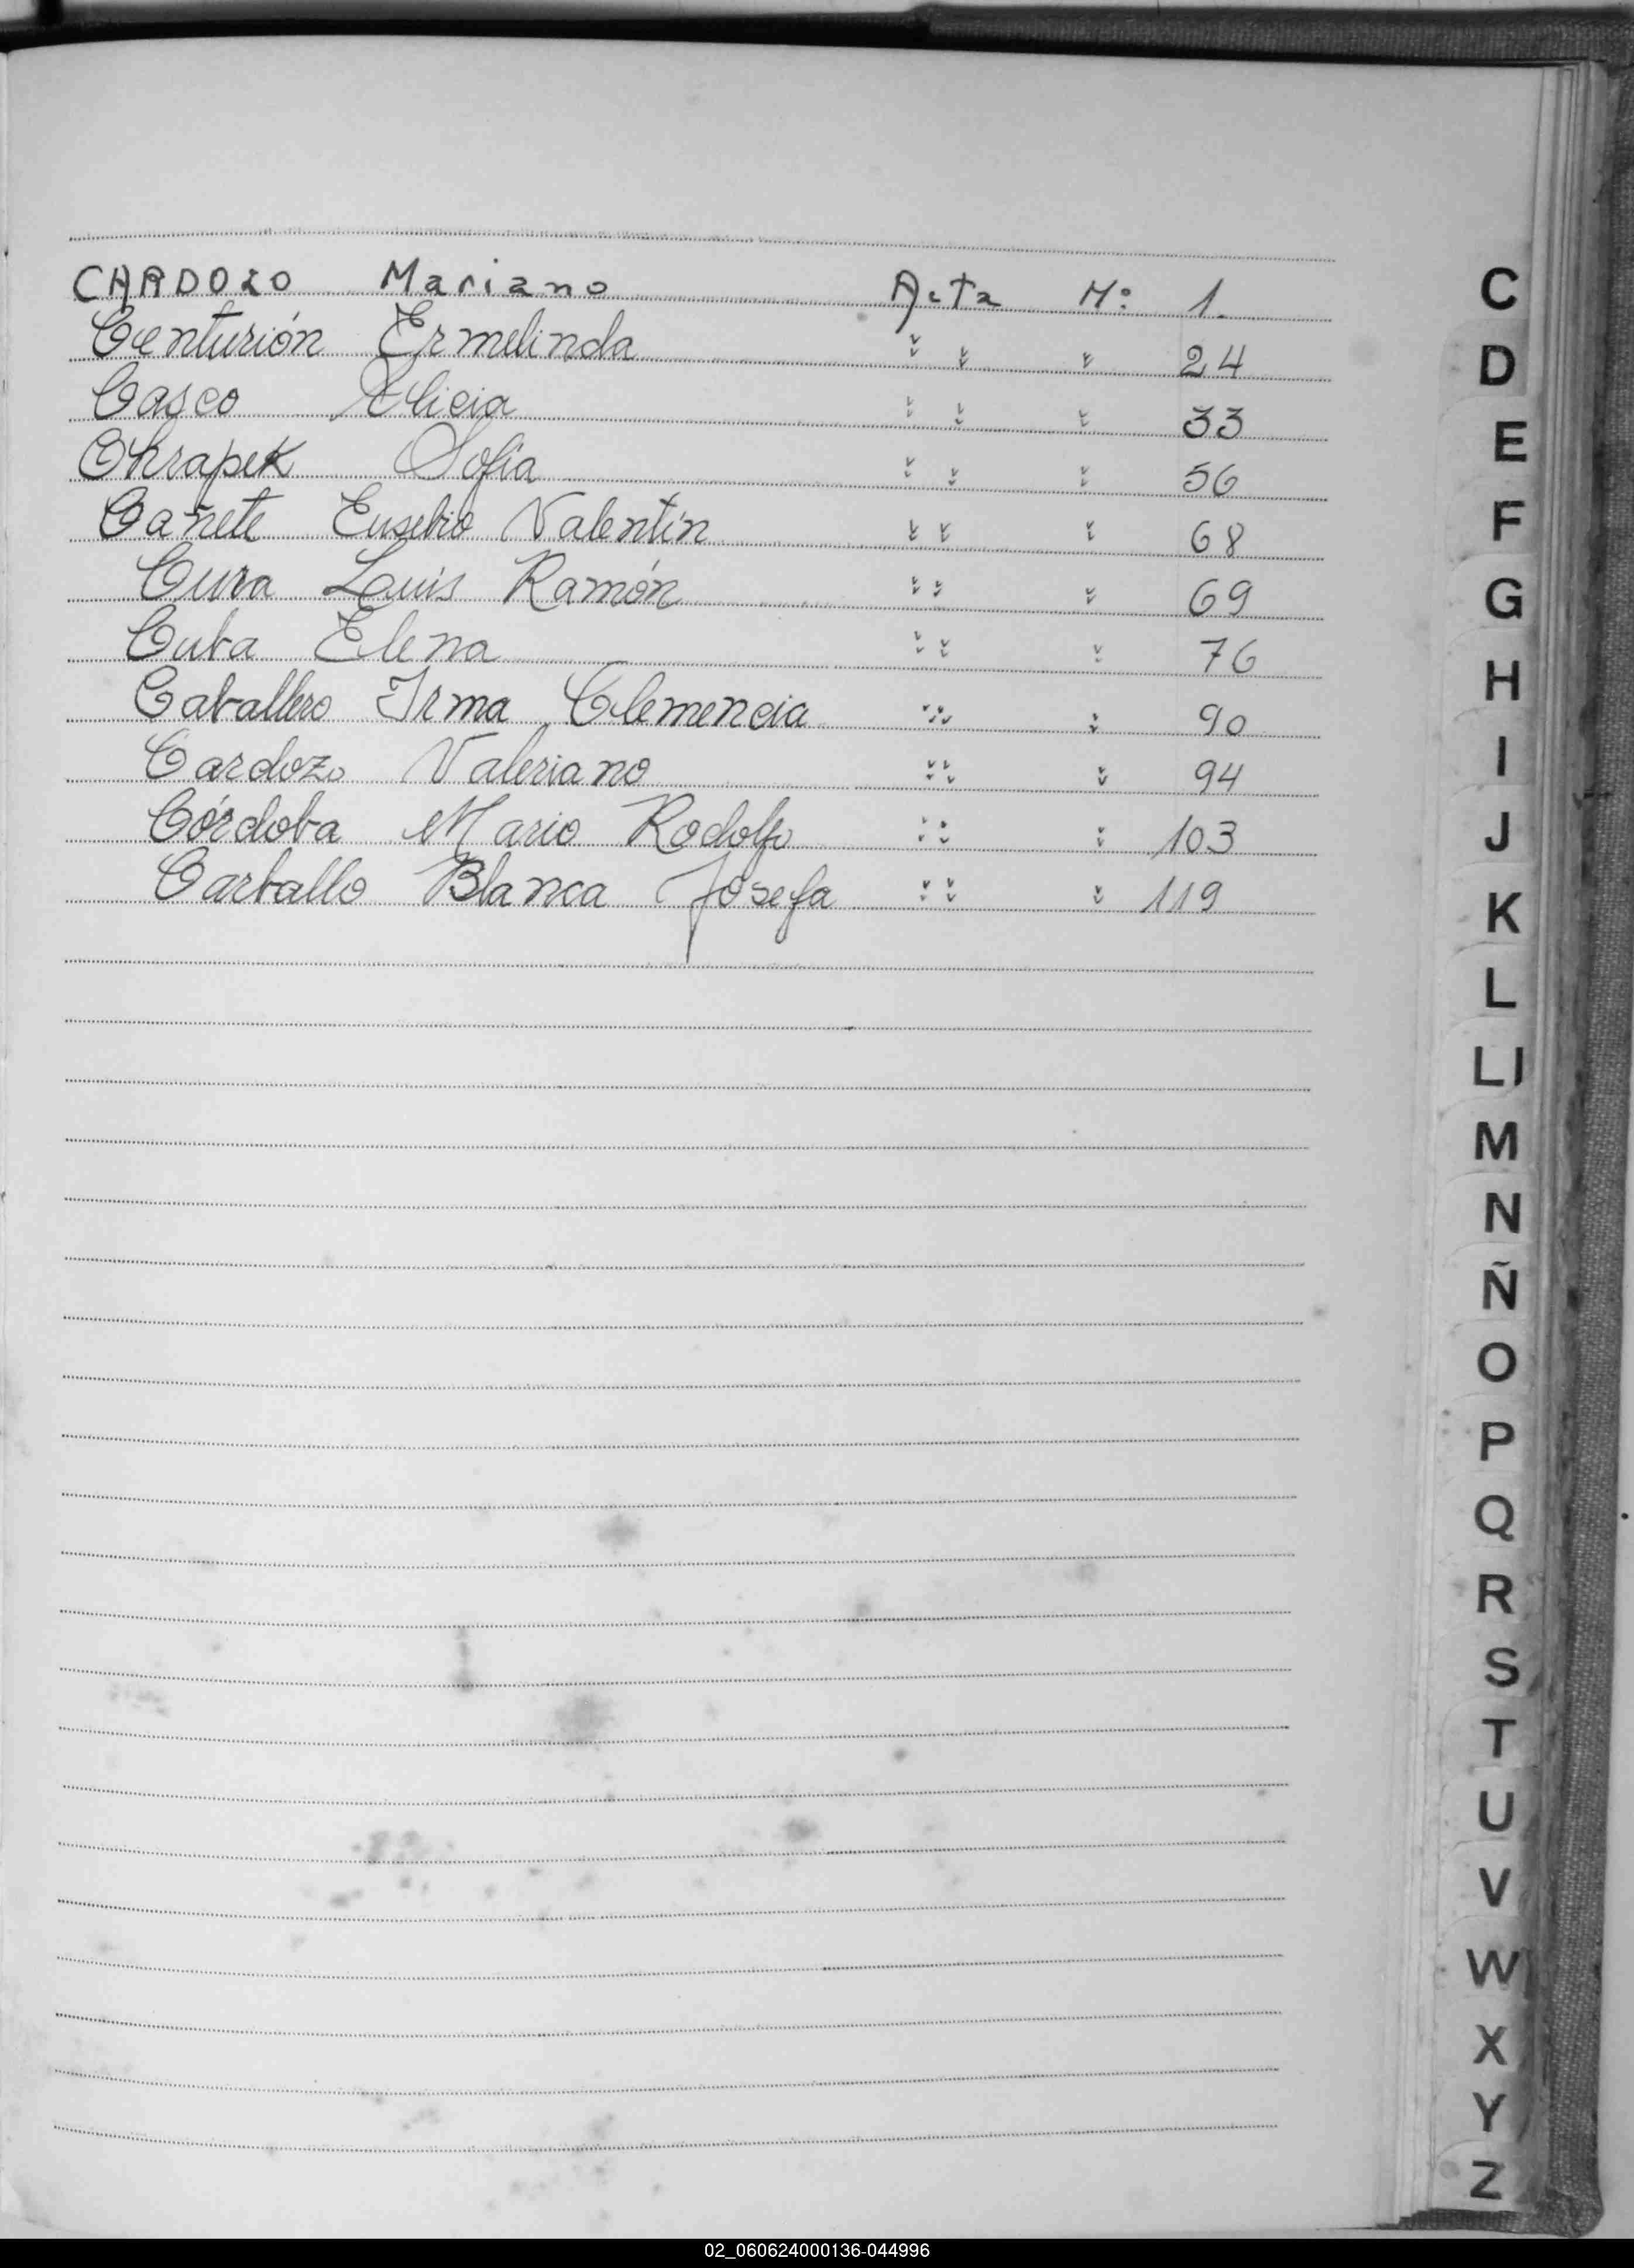 CARDOZO Mariano Acta N: 1.
Centurión Ermelinda " " " 24
Casco Alicia " " " 33
Chrapek Sofía " " " 56
Cañete Eusebio Valentín " " " 68
Cura Luis Ramón " " " 69
Cuba Elena " " " 76
Caballero Irma Clemencia " " " 90
Cardozo Valeriano " " " 94
Córdoba Mario Rodolfo " " " 103
Carballo Blanca Josefa " " " 119
C
D
E
F
G
H
I
J
K
L
Ll
M
N
Ñ
O
P
Q
R
S
T
U
V
W
X
Y
Z
02_060624000136-044996